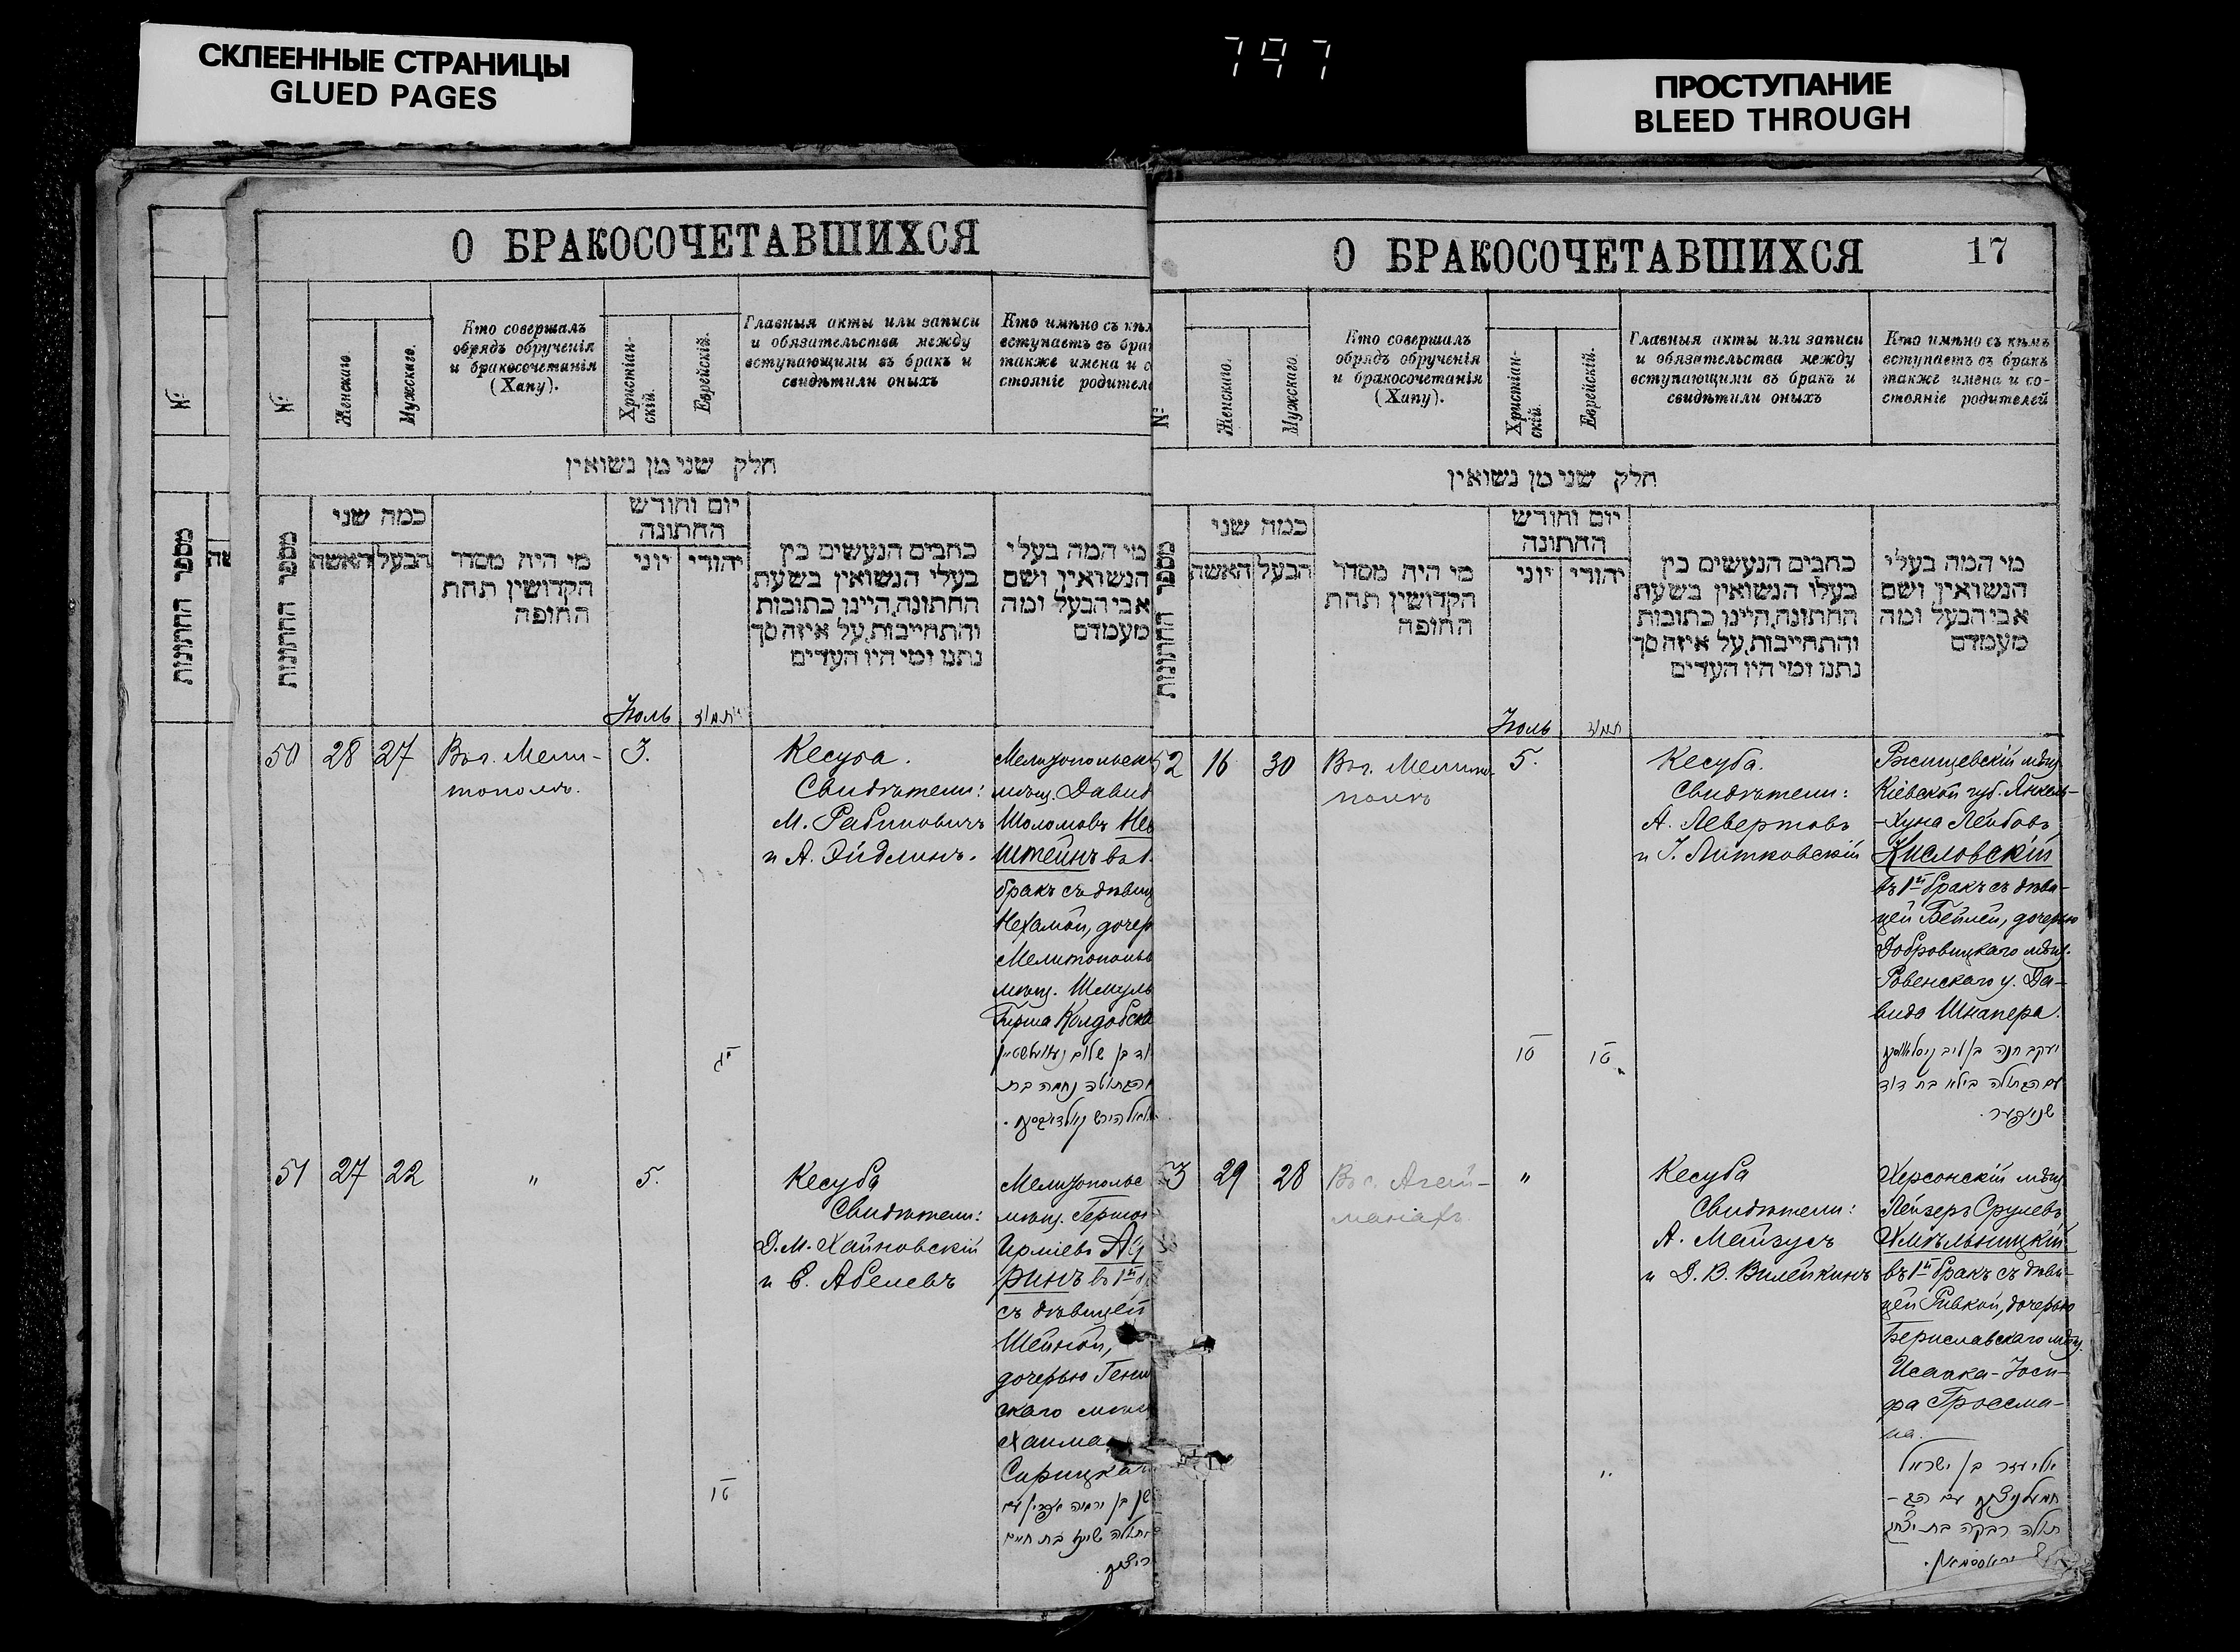 СКЛЕЕННЫЕ СТРАНИЦЫ
GLUED PAGES
797
ПРОСТУПАНИЕ
BLEED THROUGH
О БРАКОСОЧЕТАВШИХСЯ
№
№
Женскаго
Мужскаго.
Кто совершалъ
обрядъ обрученія
и бракосочетанія
(Хапу).
Христіан-
скій.
Еврейскій.
Главныя акты или записи
и обязательства между
вступающими въ бракъ и
свидѣтили оныхъ
Кто имѣно съ
вступаетъ въ
также имена и
стояніе
חלק שני מן נשואין
מספר החתונות
מספר החתונות
כמה שני
האשה
הבעל
מי היה מסדר
הקדושין תחת
החופה
יום וחודש
החתונה
יוני
יהודי
כתבים הנעשים בין
בעלי הנשואין בשעת
החתונה, היינו כתובות
והתחייבות, על איזה סך
נתנו ומי היו העדים
מי המה בעלי
הנשואין ושם
אבי הבעל ומה
מעמדם
Іюль
תמוז
50
28
27
Въ г. Мели-
тополѣ.
3.
Кесуба.
Свидѣтели:
М. Рабиновичъ
и А. Эйдлинъ.
мѣщ. Давид
Шоломовъ
штейнъ въ 1
бракъ съ дѣвиц
Нехамой, дочер
мѣщ. Шмуль
Гирша Колдобска
בן שלום
נחמה בת
הירש
יג
51
27
22
"
5.
Кесуба
Свидѣтели:
Д. М. Хайновскій
и С. Абелевъ
мѣщ.
ринъ въ 1й
съ дѣвицей
Шейной,
дочерью
скаго
Хаима
בן ירמיה
בת חיים
טו
О БРАКОСОЧЕТАВШИХСЯ
17
№
Женскаго.
Мужскаго.
Кто совершалъ
обрядъ обрученія
и бракосочетанія
(Хапу).
Христіан-
скій.
Еврейскій.
Главныя акты или записи
и обязательства между
вступающими въ бракъ и
свидѣтили оныхъ
Кто имѣно съ кѣмъ
вступаетъ въ бракъ
также имена и со-
стояніе родителей
חלק שני מן נשואין
מספר החתונות
כמה שני
האשה
הבעל
מי היה מסדר
הקדושין תחת
החופה
יום וחודש
החתונה
יוני
יהודי
כתבים הנעשים בין
בעלי הנשואין בשעת
החתונה, היינו כתובות
והתחייבות, על איזה סך
נתנו ומי היו העדים
מי המה בעלי
הנשואין ושם
אבי הבעל ומה
מעמדם
Іюль
תמוז
52
16
30
Въ г. Мелито-
полѣ
5.
Кесуба.
Свидѣтели:
А. Левертовъ
и І. Литковскій
Ржищевскій мѣщ.
Кіевской губ. Янкель-
-Хуна Лейбовъ
Кисловскій
въ 1й бракъ съ дѣви-
цей Бейлей, дочерью
Домбровицкаго мѣщ.
Ровенскаго у. Да-
вида Шнапера.
טו
טו
יעקב חנה בן ליב
עם הבתולה ביילא בת דוד
53
29
28
Въ с. Агей-
манахъ.
"
Кесуба
Свидѣтели:
А. Мейзусъ
и Д. В. Вилейкинъ
Херсонскій мѣщ.
Лейзеръ Срулевъ
Хмѣльницкій
въ 1й бракъ съ дѣви-
цей Ривкой, дочерью
Бериславскаго мѣщ.
Исаака-Іоси-
фа Гроссма-
на.
"
אליעזר בן ישראל
עם הב-
תולה רבקה בת יצחק